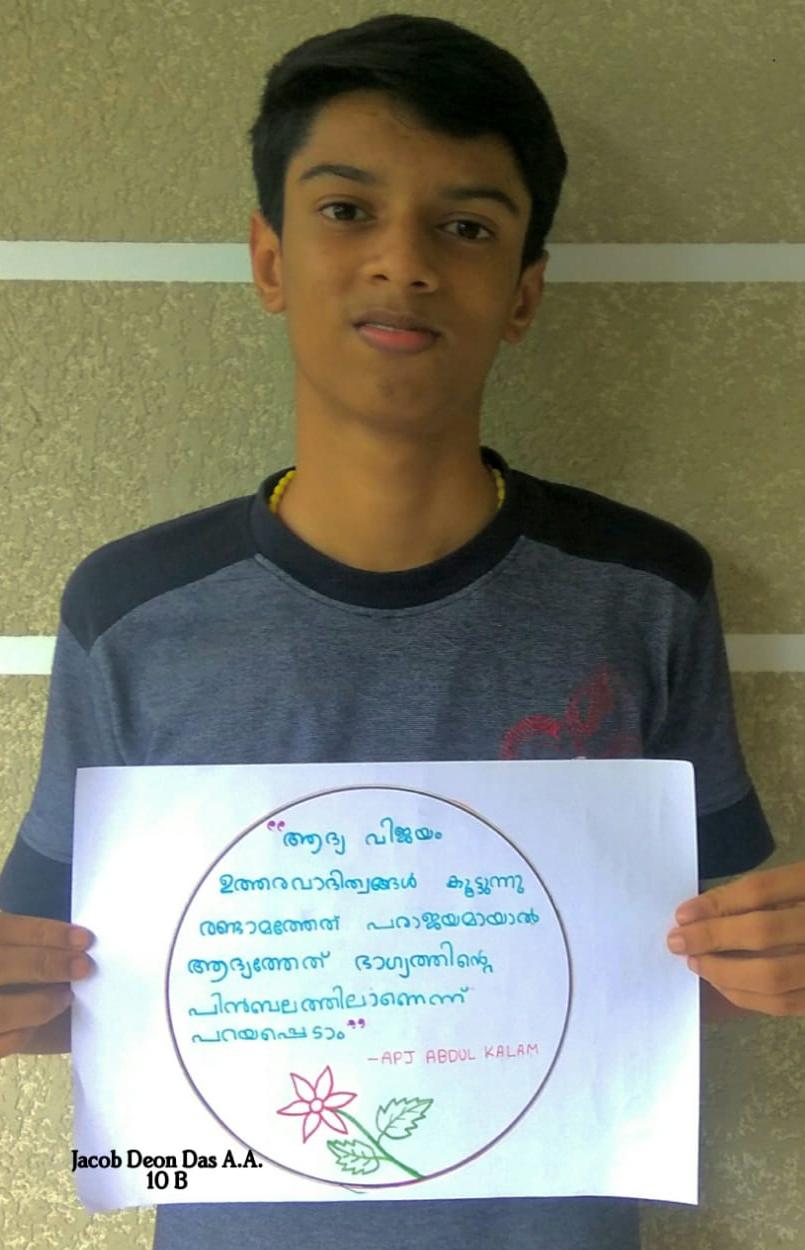 “ആദ്യ വിജയം
ഉത്തരവാദിത്വങ്ങൾ കൂട്ടുന്നു
രണ്ടാമത്തേത് പരാജയമായാൽ
ആദ്യത്തേത് ഭാഗ്യത്തിന്റെ
പിൻബലത്തിലാണെന്ന്
പറയപ്പെടാം”
-APJ ABDUL KALAM
Jacob Deon Das A.A.
10 B